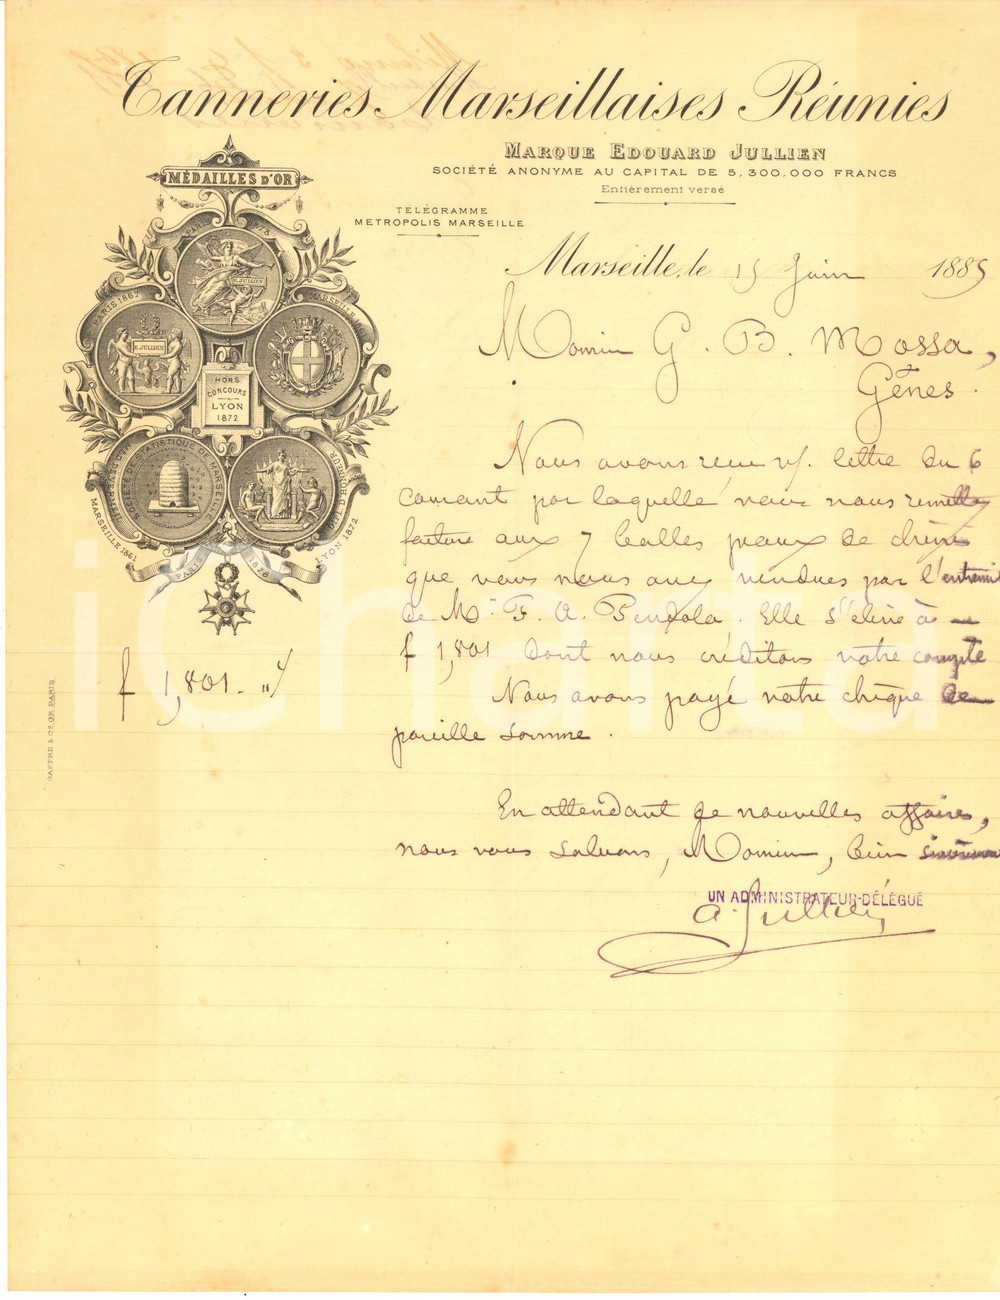 Tanneries Marseillaises Réunies
MARQUE EDOUARD JULLIEN
SOCIÉTÉ ANONYME AU CAPITAL DE 5,300,000 FRANCS
Entièrement versé
TÉLÉGRAMME
METROPOLIS MARSEILLE
MÉDAILLES D'OR
PARIS 1878
E. JULLIEN
PARIS 1867
E. JULLIEN
HORS
CONCOURS
LYON
1872
SOCIÉTÉ DE STATISTIQUE DE MARSEILLE
MARSEILLE 1861
LYON 1872
PARIS 1878
Marseille, le 15 Juin 1885
Monsieur G. B. Mossa,
Gênes.
Nous avons reçu v/. lettre du 6
courant par laquelle vous nous remettez
facture aux 7 balles peaux de chèvre
que vous nous avez vendues par l'entremise
de Mr. F. A. Bendola. Elle s'élève à
f 1,801 dont nous créditons votre compte
f 1,801. "/
Nous avons payé votre chèque de
pareille somme.
En attendant de nouvelles affaires,
nous vous saluons, Monsieur, bien sincèrement
UN ADMINISTRATEUR-DÉLÉGUÉ
A. Jullien
GAFFRE & Cie GR. PARIS
iCharta